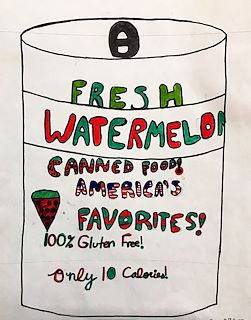 FRESH
WATERMELON
CANNED FOOD!
AMERICA'S
FAVORITES!
100% Gluten Free!
Only 10 Calories!